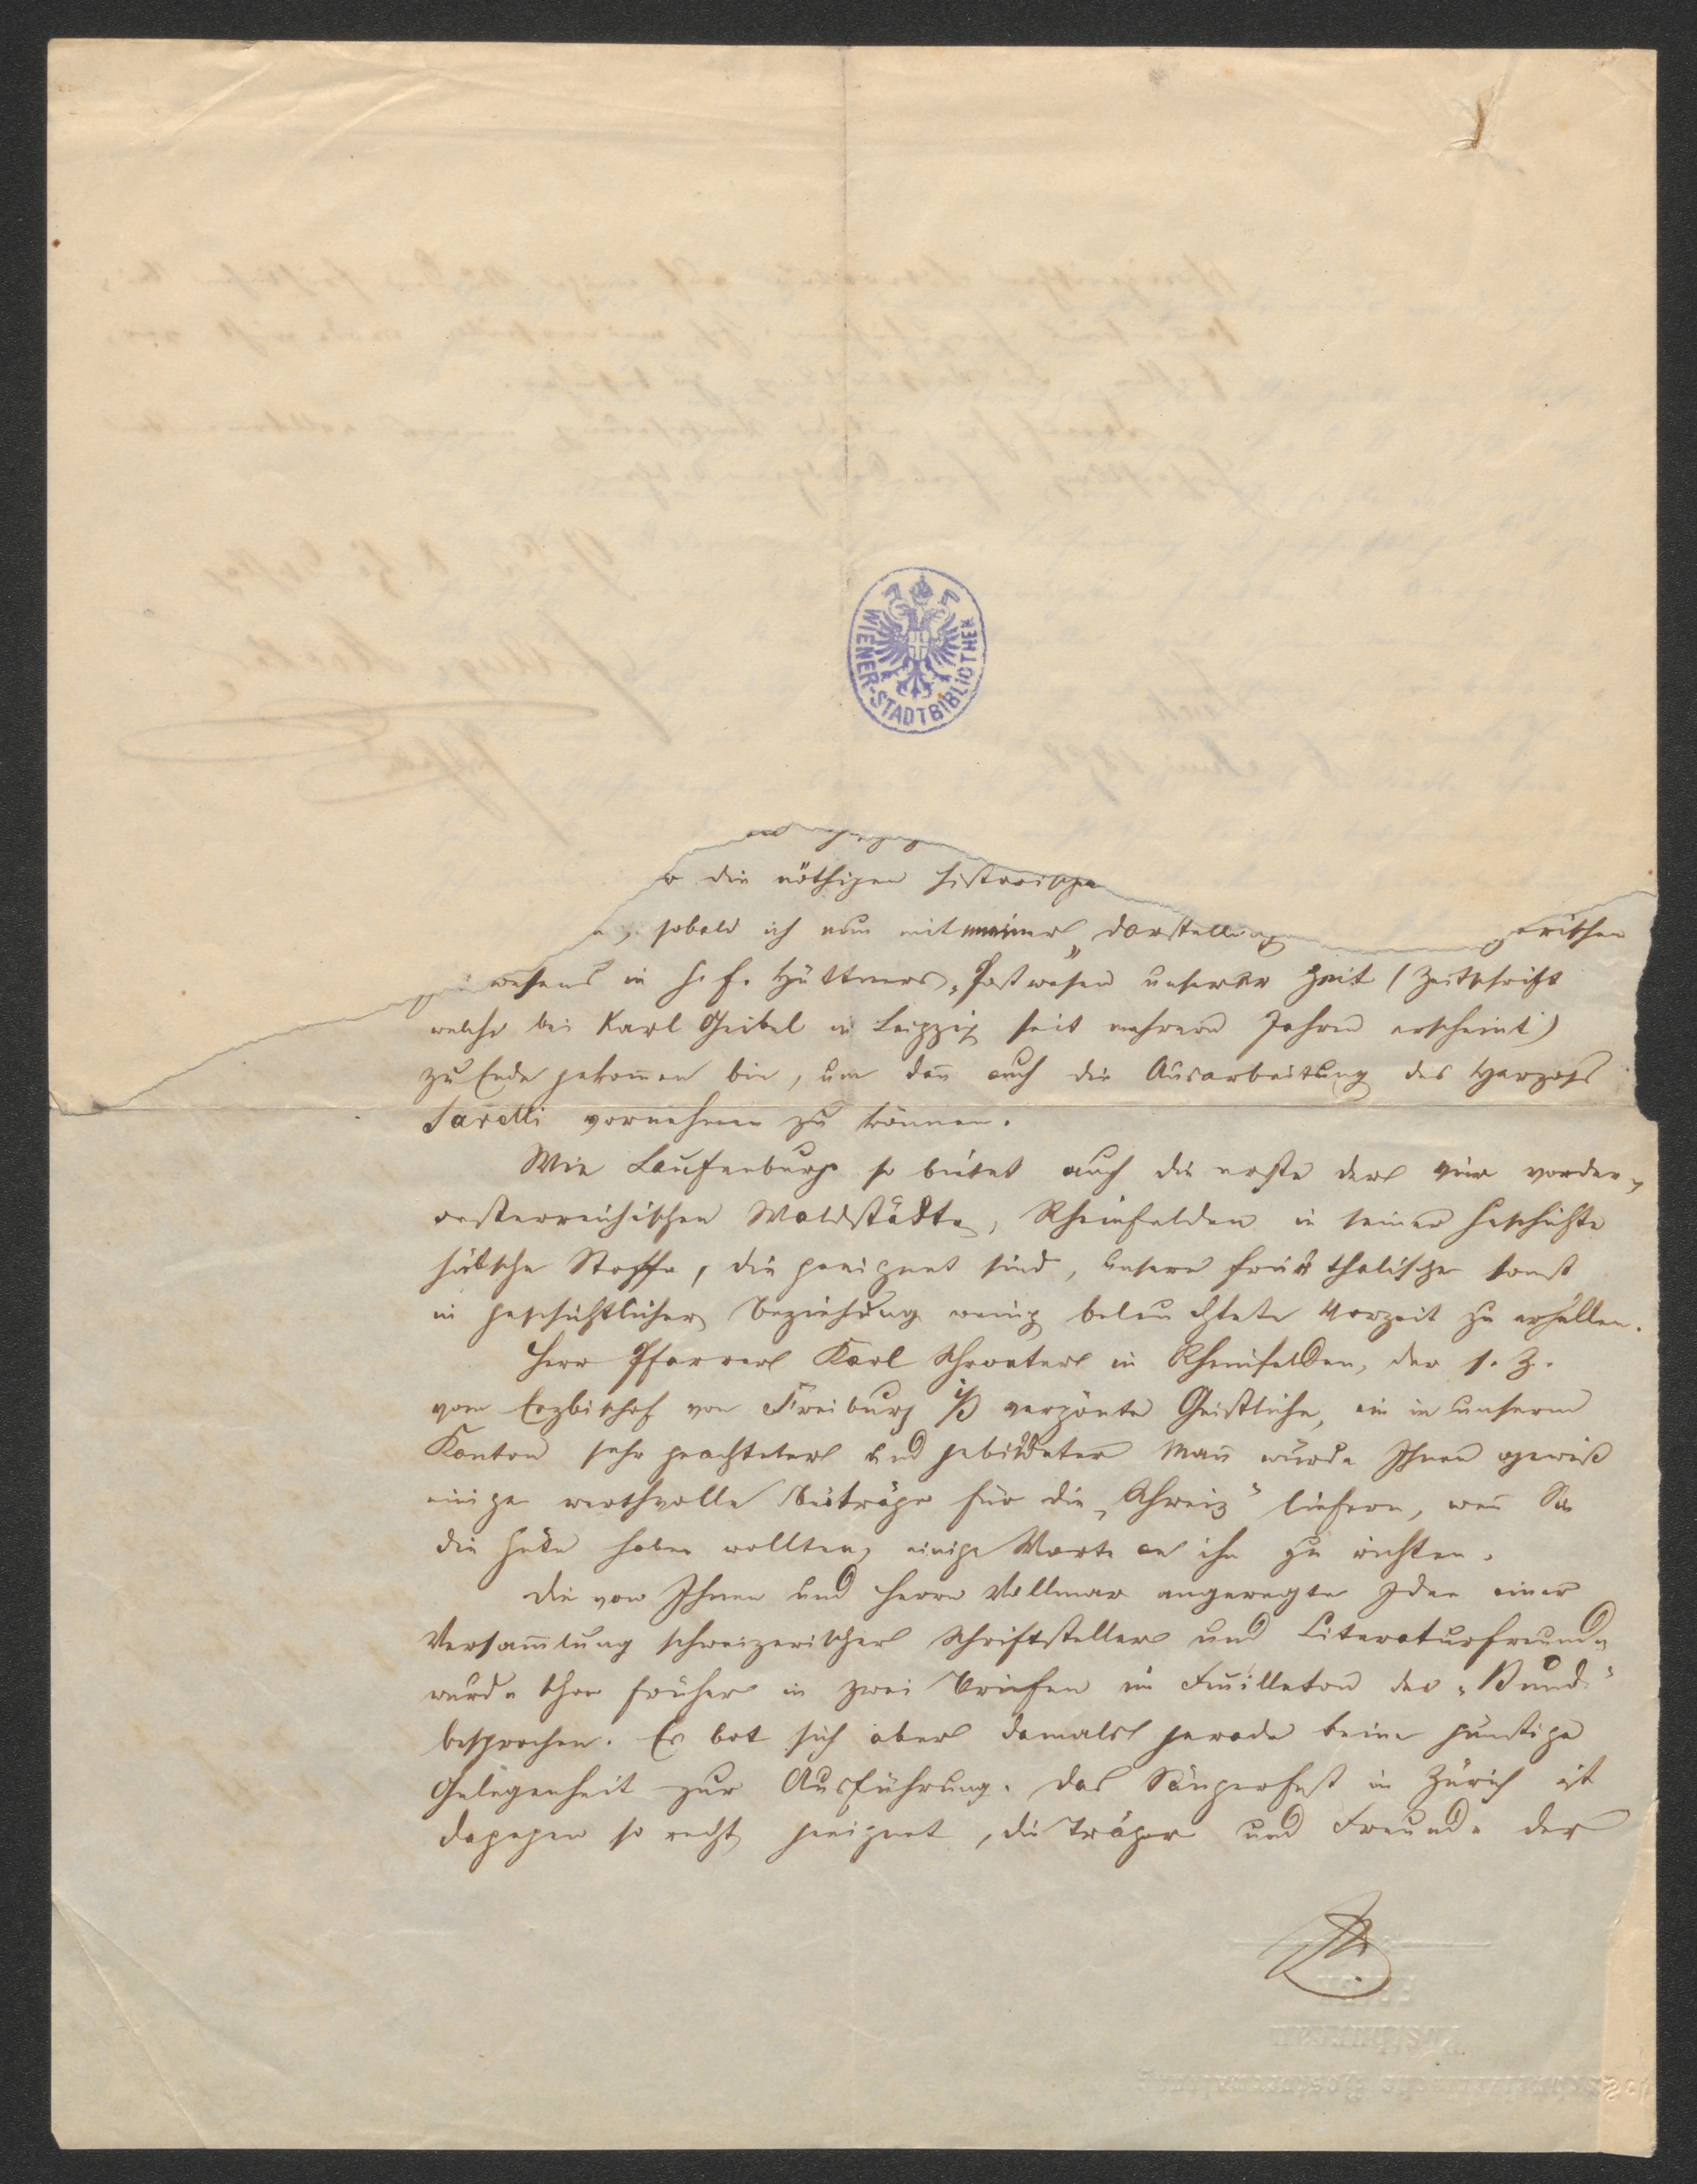 WIENER-STADTBIBLIOTHEK
die nöthigen historischen
sobald ich nun mit meiner Darstellung
wesens in H. F. Hüttners „Postwesen unserer Zeit (Zeitschrift
welche bei Karl Geibel in Leipzig seit mehrern Jahren erscheint)
zu Ende gekom̄en bin, um dan̄ auch die Ausarbeitung des Herzogs
vornehmen zu können.
Wie Laufenburg so bietet auch die erste der vier vorder-
oesterreichischen Waldstädte, Rheinfelden in seiner Geschichte
hübsche Stoffe, die geeignet sind, unsere frickthalische sonst
in geschichtlicher Beziehung wenig beleuchtete Vorzeit zu erhellen.
Herr Pfarrer Karl Schröter in Rheinfelden, der s. Z.
vom Erzbischof von Freiburg i/B verpönte Geistliche, ein in unserm
Kanton sehr geachteter und gebildeter Man̄ würde Ihnen gewiß
einige werthvolle Beiträge für die „Schweiz" liefern, wen̄ Sie
die Güte haben wollten, einige Worte an ihn zu richten.
Die von Ihnen und Herrn Vollmar angeregte Idee einer
Versam̄lung schweizerischer Schriftsteller und Literaturfreunde
wurde schon früher in zwei Briefen im Feuilleton des „Bund"
besprochen. Es bot sich aber damals gerade keine günstige
Gelegenheit zur Ausführung. Das Sängerfest in Zürich ist
dagegen so recht geeignet, die Träger und Freunde der